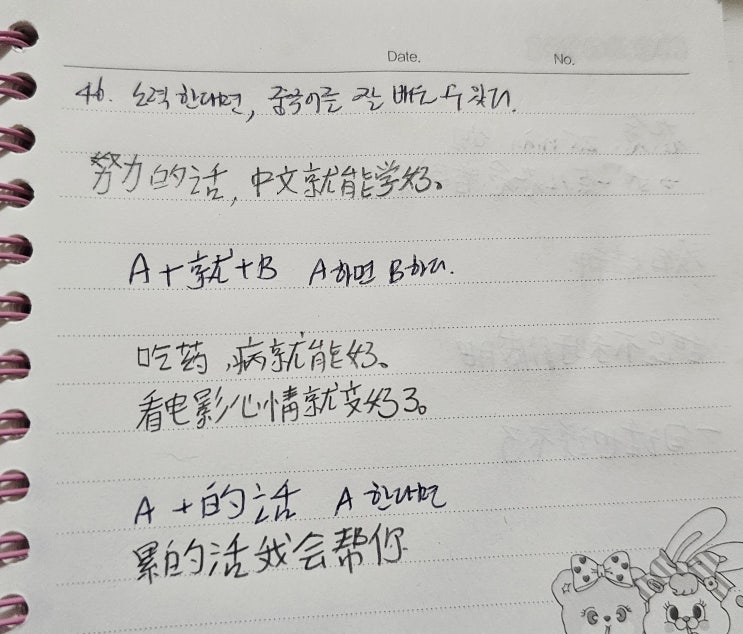 Date.
No.
46. 노력한다면, 중국어를 잘 배울 수 있다.
努力的话, 中文就能学好。
A+就+B A하면 B하다.
吃药, 病就能好。
看电影心情就变好了。
A + 的话 A 한다면
累的活我会帮你